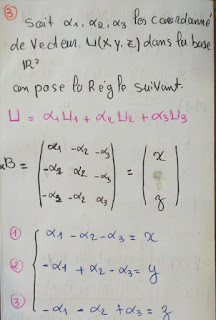 ③ Soit α1, α2, α3 les coordonné
de Vecteur U(x y, z) dans la base
IR³
on pose la Règle suivant.
U = α1U1 + α2U2 + α3U3
αB = ( α1 -α2 -α3 -α2 α2 -α3 -α2 -α2 α3 ) = ( x z )
① α1 - α2 - α3 = x
② -α1 + α2 - α3 = y
③ -α1 - α2 + α3 = z